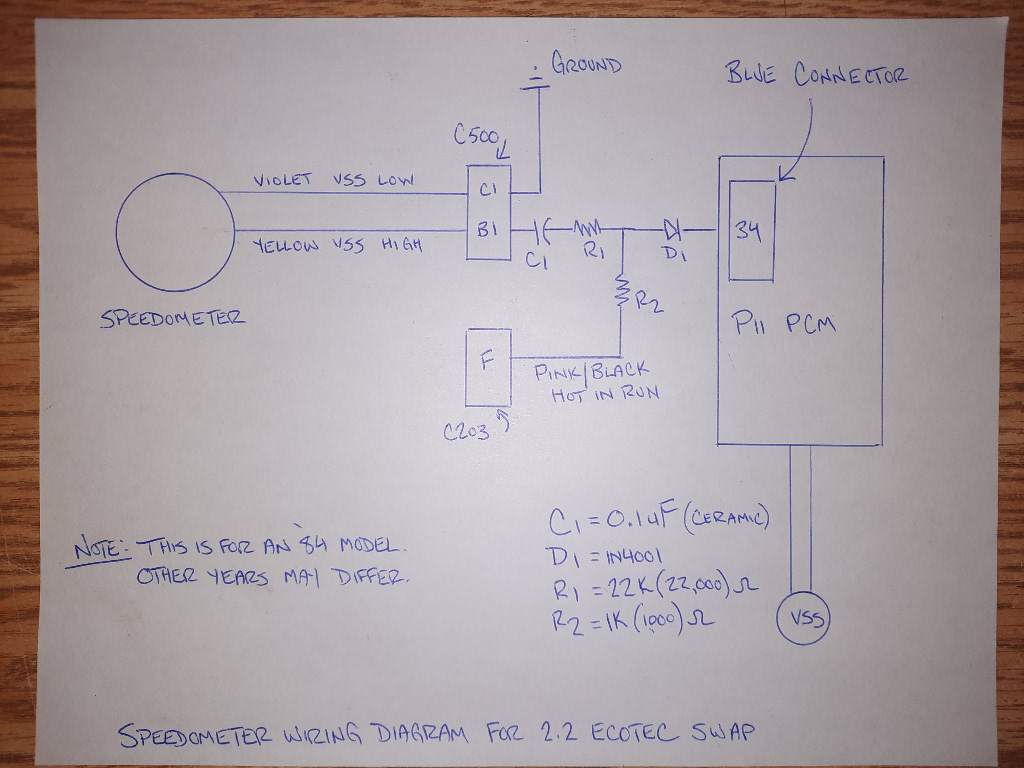 GROUND
BLUE CONNECTOR
C500
VIOLET VSS LOW
C1
YELLOW VSS HIGH
B1
C1
R1
D1
34
SPEEDOMETER
R2
P11 PCM
F
PINK/BLACK
HOT IN RUN
C203
C1 = 0.1uF (CERAMIC)
D1 = 1N4001
R1 = 22K (22,000) Ω
R2 = 1K (1000) Ω
VSS
NOTE: THIS IS FOR AN '84 MODEL.
OTHER YEARS MAY DIFFER.
SPEEDOMETER WIRING DIAGRAM FOR 2.2 ECOTEC SWAP